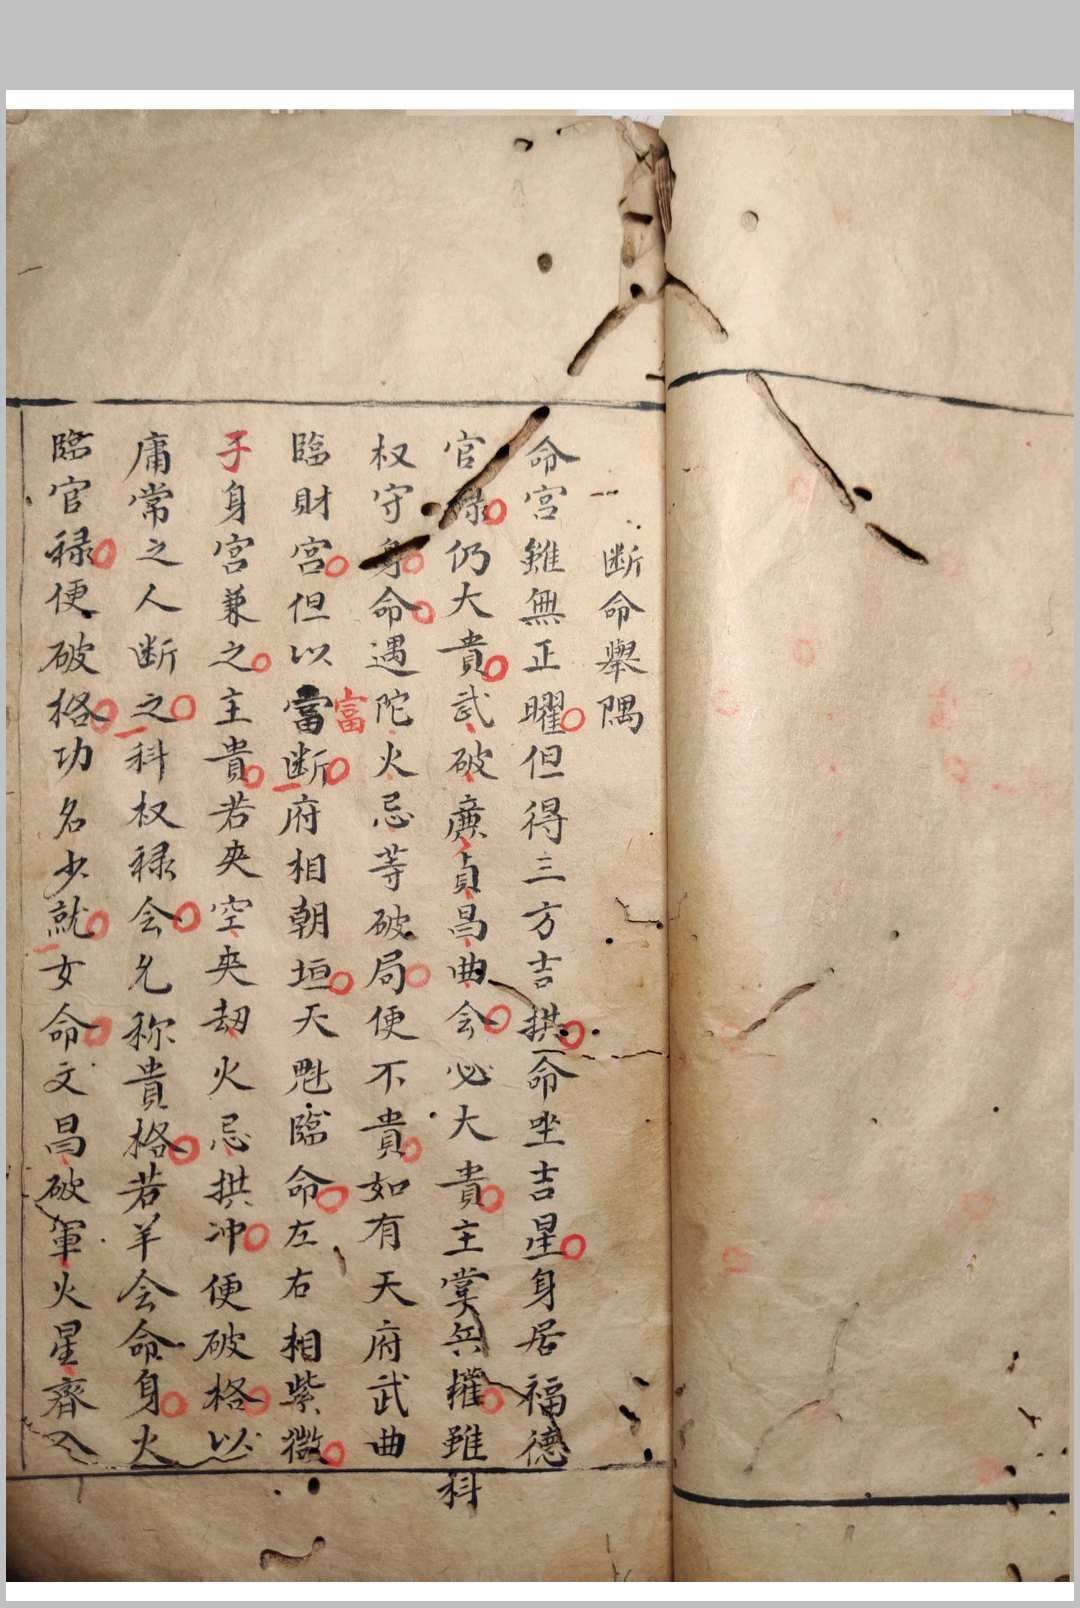 断命舉隅
命宫雖無正曜但得三方吉拱命坐吉星身居福德
官禄仍大貴武破廉貞昌曲会必大貴主掌兵權雖科
权守身命遇陀火忌等破局便不貴如有天府武曲
臨財宫但以當富断府相朝垣天魁臨命左右相紫微
于身宫兼之主貴若夾空夾劫火忌拱冲便破格以
庸常之人断之科权禄会允称貴格若羊会命身火
臨官禄便破格功名少就女命文昌破軍火星齊入